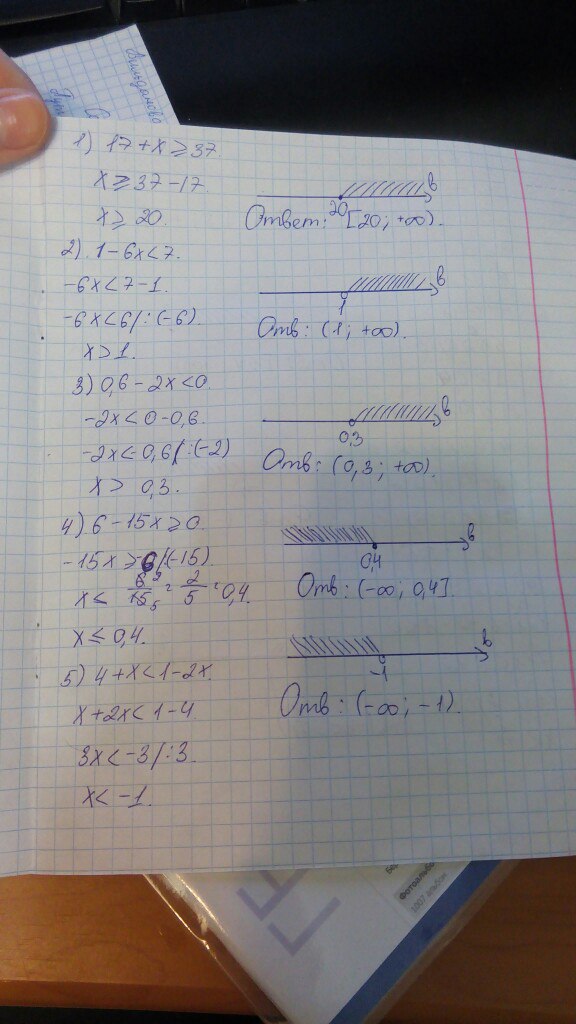 Вильданова
1) 17 + x ≥ 37.
x ≥ 37 - 17.
x ≥ 20.
20
в
Ответ: [20; +∞).
2) 1 - 6x < 7.
-6x < 7 - 1.
-6x < 6 / : (-6).
x > 1.
1
в
Отв: (1; +∞).
3) 0,6 - 2x < 0.
-2x < 0 - 0,6.
-2x < -0,6 / : (-2)
x > 0,3.
0,3
в
Отв: (0,3; +∞).
4) 6 - 15x ≥ 0.
-15x ≥ -6 / (-15).
x ≤ 6 2 / 15 5 = 2/5 = 0,4.
x ≤ 0,4.
0,4
в
Отв: (-∞; 0,4].
5) 4 + x < 1 - 2x.
x + 2x < 1 - 4.
3x < -3 / : 3.
x < -1.
-1
в
Отв: (-∞; -1).
Фотоальбо
1007 альбом